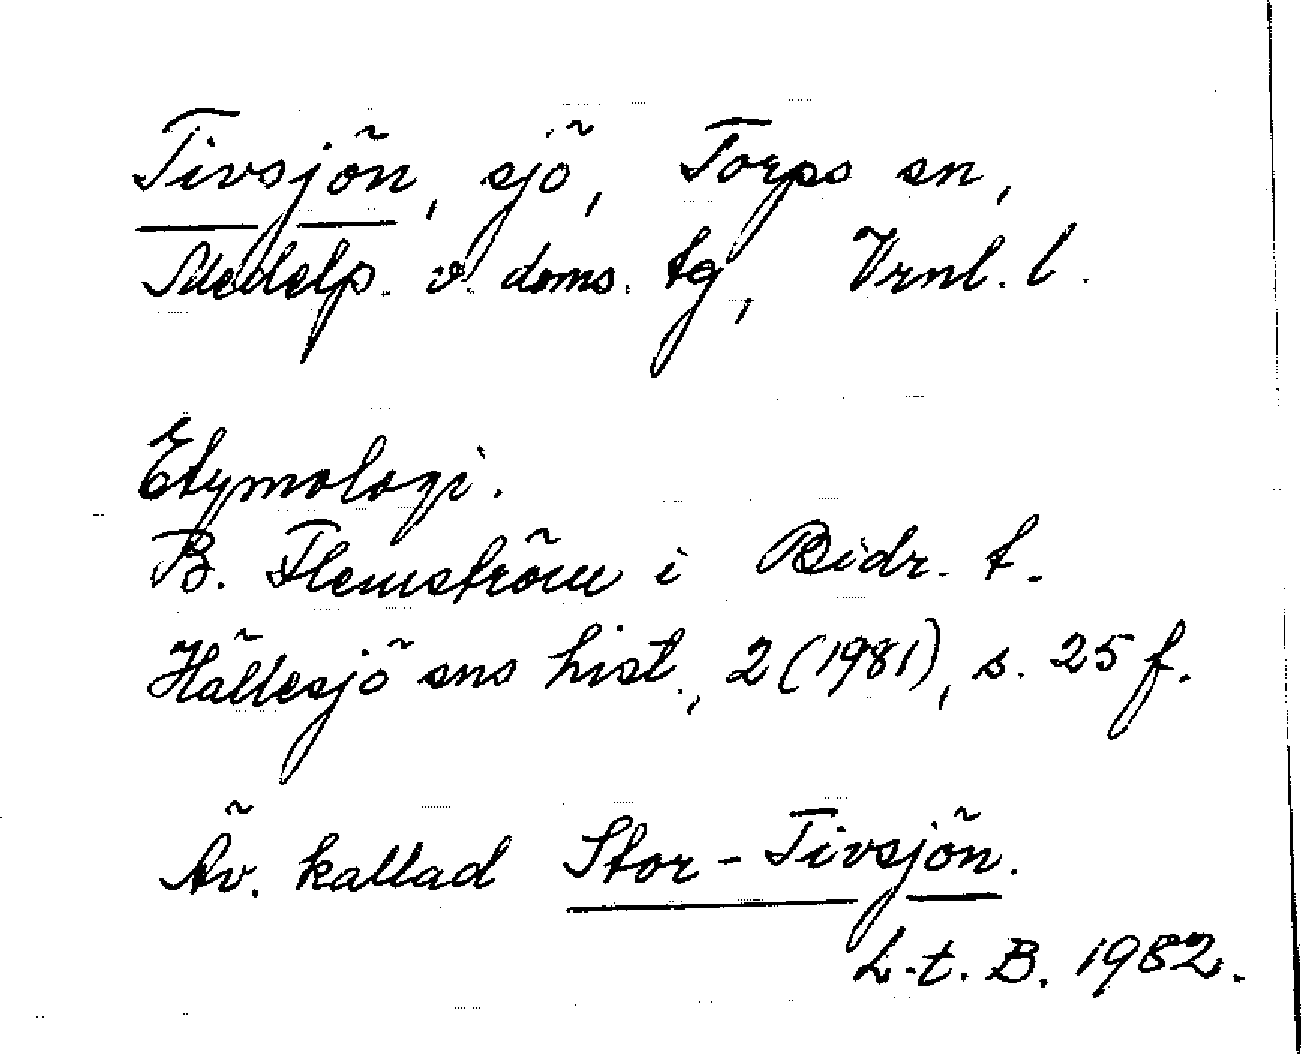 Tivsjön, sjö, Torps sn,
Medelp. v. doms. tg, Vrnl. l.
Etymologi.
B. Flemström i Bidr. t.
Hällesjö sns hist., 2 (1981), s. 25 f.
Äv. kallad Stor-Tivsjön.
L.t. B. 1982.